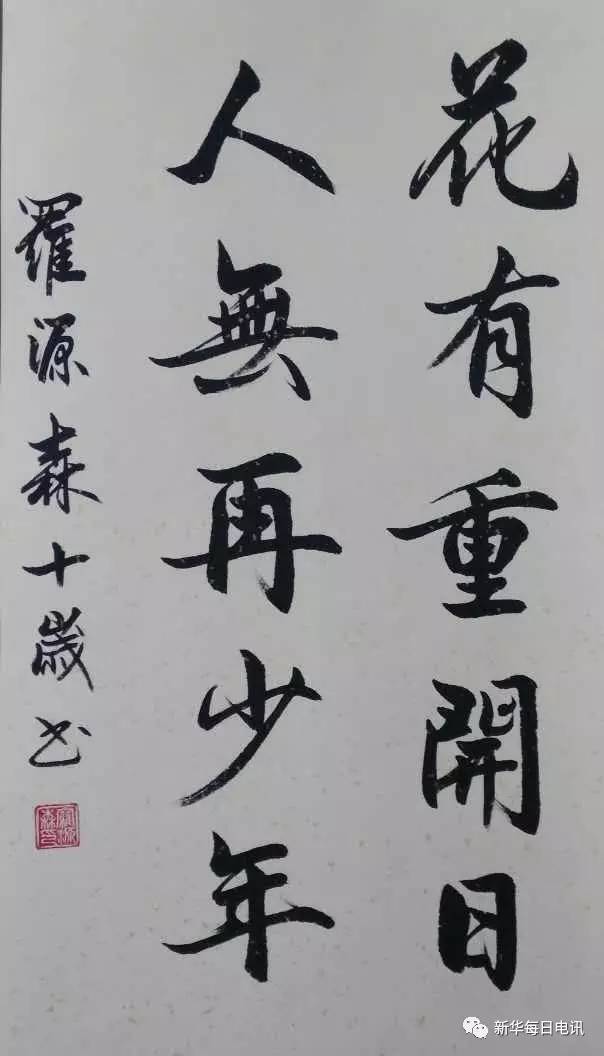 花有重開日
人無再少年
羅源森十歲书
新华每日电讯